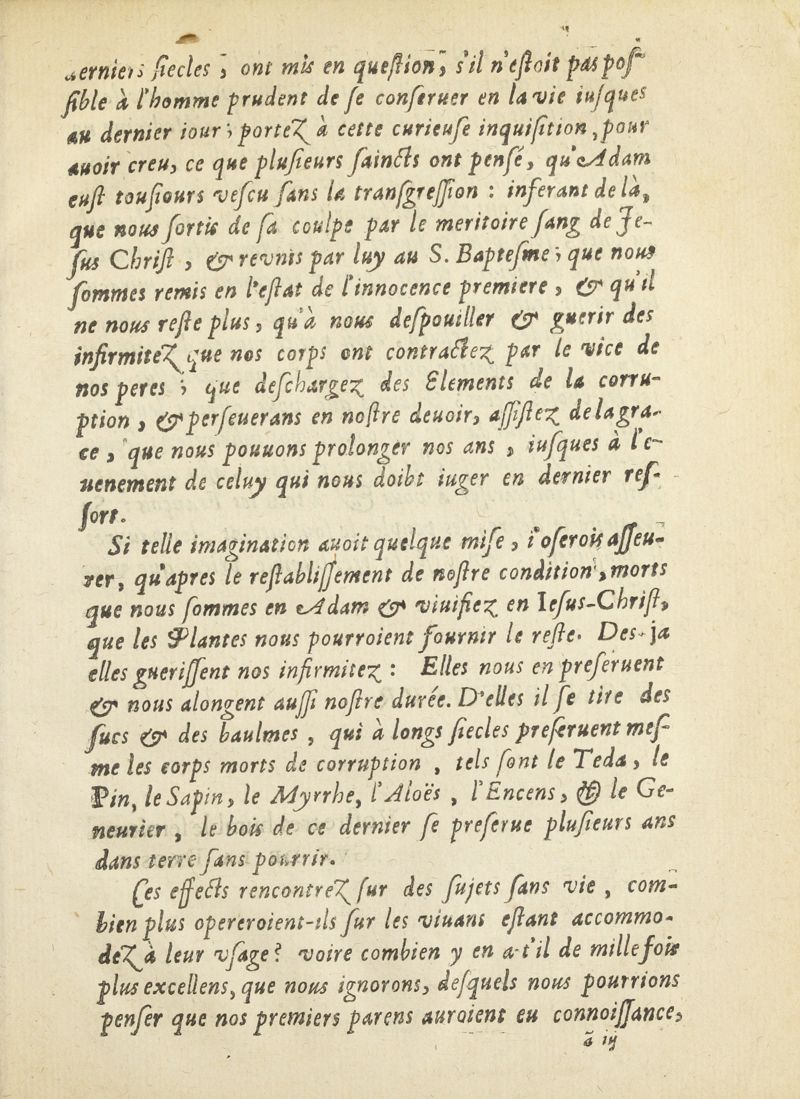 derniers siecles ; ont mis en question, s'il n'estoit pas pos-
sible à l'homme prudent de se conseruer en la vie iusques
au dernier iour ; portez à cette curieuse inquisition, pour
auoir creu, ce que plusieurs saincts ont pensé, qu'Adam
eust tousiours vescu sans la transgression : inferant de là,
que nous sortis de sa coulpe par le meritoire sang de Je-
sus Christ , & revnis par luy au S. Baptesme ; que nous
sommes remis en l'estat de l'innocence premiere , & qu'il
ne nous reste plus, qu'à nous despouiller & guerir des
infirmitez que nos corps ont contractez par le vice de
nos peres ; que deschargez des Elements de la corru-
ption , & perseuerans en nostre deuoir, assistez de la gra-
ce , que nous pouuons prolonger nos ans , iusques à l'e-
uenement de celuy qui nous doibt iuger en dernier res-
sort.
Si telle imagination auoit quelque mise , i'oserois asseu-
rer, qu'apres le restablissement de nostre condition, morts
que nous sommes en Adam & viuifiez en Iesus-Christ,
que les Plantes nous pourroient fournir le reste. Des-ja
elles guerissent nos infirmitez : Elles nous en preseruent
& nous alongent aussi nostre durée. D'elles il se tire des
sucs & des baulmes , qui à longs siecles preseruent mes-
me les corps morts de corruption , tels sont le Teda, le
Pin, le Sapin, le Myrrhe, l'Aloës , l'Encens, & le Ge-
neurier , le bois de ce dernier se preserue plusieurs ans
dans terre sans pourrir.
Ces effects rencontrez sur des sujets sans vie , com-
bien plus opereroient-ils sur les viuans estant accommo-
dez à leur vsage ? voire combien y en a-t'il de mille fois
plus excellens, que nous ignorons, desquels nous pourrions
penser que nos premiers parens auroient eu connoissance,
ã iij